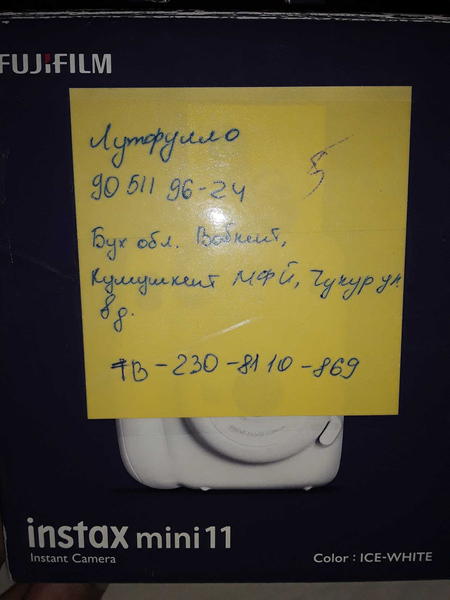 FUJIFILM
Лутфулло
90 511 96-24
5
Бух обл. Вобкент,
Кумушкент МФЙ, Чукур ул.
8 д.
7В-230-8110-869
instax mini 11
Instant Camera
Color : ICE-WHITE